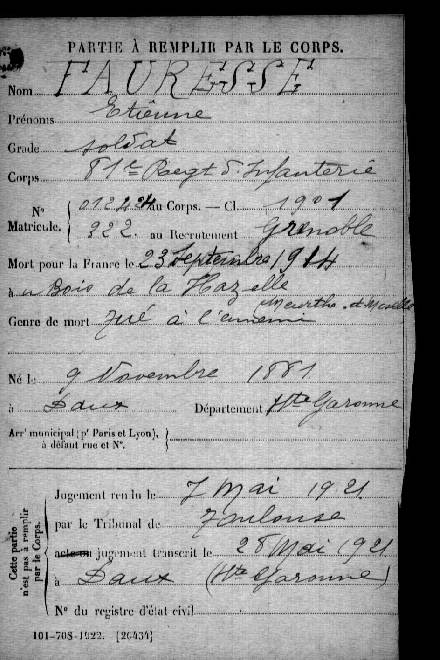 PARTIE À REMPLIR PAR LE CORPS.
Nom FAURESSE
Prénoms Etienne
Grade soldat
Corps 81e Regt d'Infanterie
N° Matricule. { au Corps. — Cl. 1901
322. au Recrutement Grenoble
Mort pour la France le 23 Septembre 1914
à au Bois de la Hazelle
Meurthe et Moselle
Genre de mort Tué à l'ennemi
Né le 9 Novembre 1881
à Daux Département Hte Garonne
Arrt municipal (pr Paris et Lyon),
à défaut rue et N°.
Cette partie n'est pas à remplir par le Corps.
Jugement rendu le 7 Mai 1921
par le Tribunal de Toulouse
acte ou jugement transcrit le 28 Mai 1921
à Daux (Hte Garonne)
N° du registre d'état civil
101-708-1922. [26434]